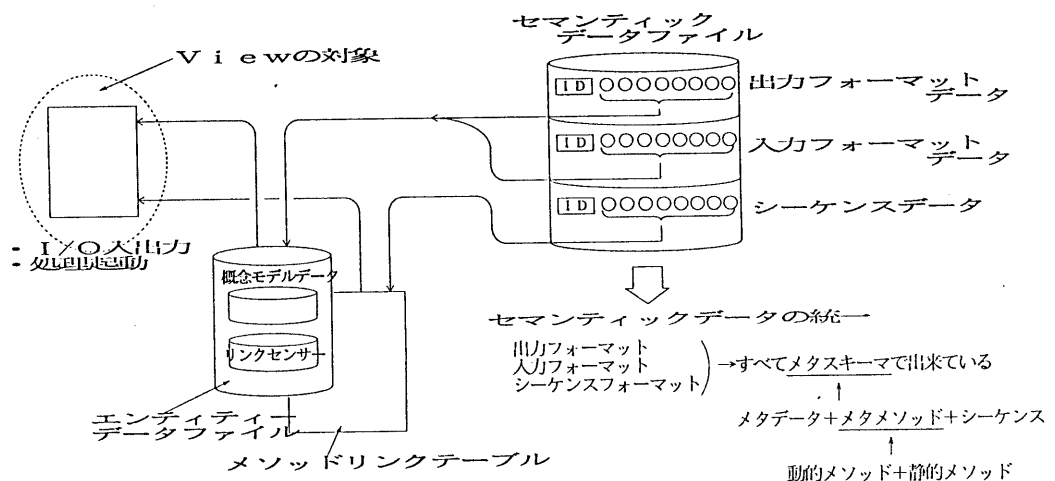 セマンティック
データファイル
Ｖｉｅｗの対象
ＩＤ ○○○○○○○○ 出力フォーマット
データ
ＩＤ ○○○○○○○○ 入力フォーマット
データ
ＩＤ ○○○○○○○○ シーケンスデータ
・Ｉ/Ｏ入出力
・処理起動
概念モデルデータ
リンクセンサー
エンティティー
データファイル
メソッドリンクテーブル
セマンティックデータの統一
出力フォーマット
入力フォーマット
シーケンスフォーマット
→すべてメタスキーマで出来ている
メタデータ+メタメソッド+シーケンス
動的メソッド+静的メソッド